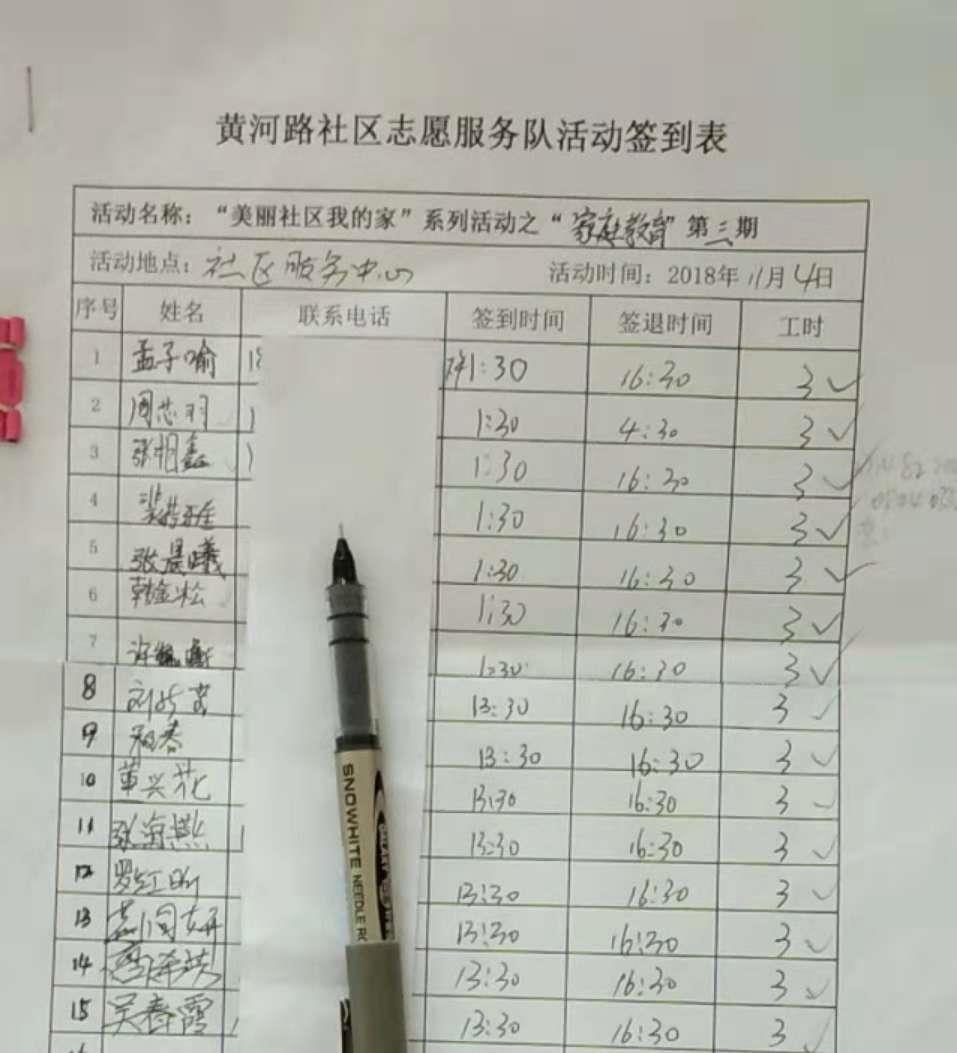 黄河路社区志愿服务队活动签到表
活动名称：“美丽社区我的家”系列活动之“家庭教育”第三期
活动地点：社区服务中心 活动时间：2018年11月4日
序号 姓名 联系电话 签到时间 签退时间 工时
1 孟子喻 1:30 16:30 3✓
2 周芯羽 1:30 4:30 3✓
3 张相鑫 1:30 16:30 3✓
4 1:30 16:30 3✓
5 张晨曦 1:30 16:30 3✓
6 韩金松 1:30 16:30 3✓
7 1:30 16:30 3✓
8 13:30 16:30 3✓
9 13:30 16:30 3✓
10 董兴花 13:30 16:30 3✓
11 张海燕 13:30 16:30 3✓
12 罗红 13:30 16:30 3✓
13 13:30 16:30 3✓
14 13:30 16:30 3✓
15 吴春霞 13:30 16:30 3
SNOWHITE NEEDLE